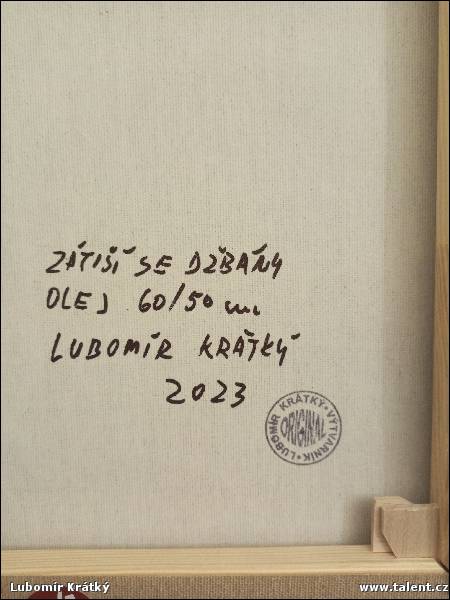 ZÁTIŠÍ SE DŽBÁNY
OLEJ 60/50 cm
LUBOMÍR KRÁTKÝ
2023
LUBOMÍR KRÁTKÝ • VÝTVARNÍK •
ORIGINAL
Lubomír Krátký
www.talent.cz